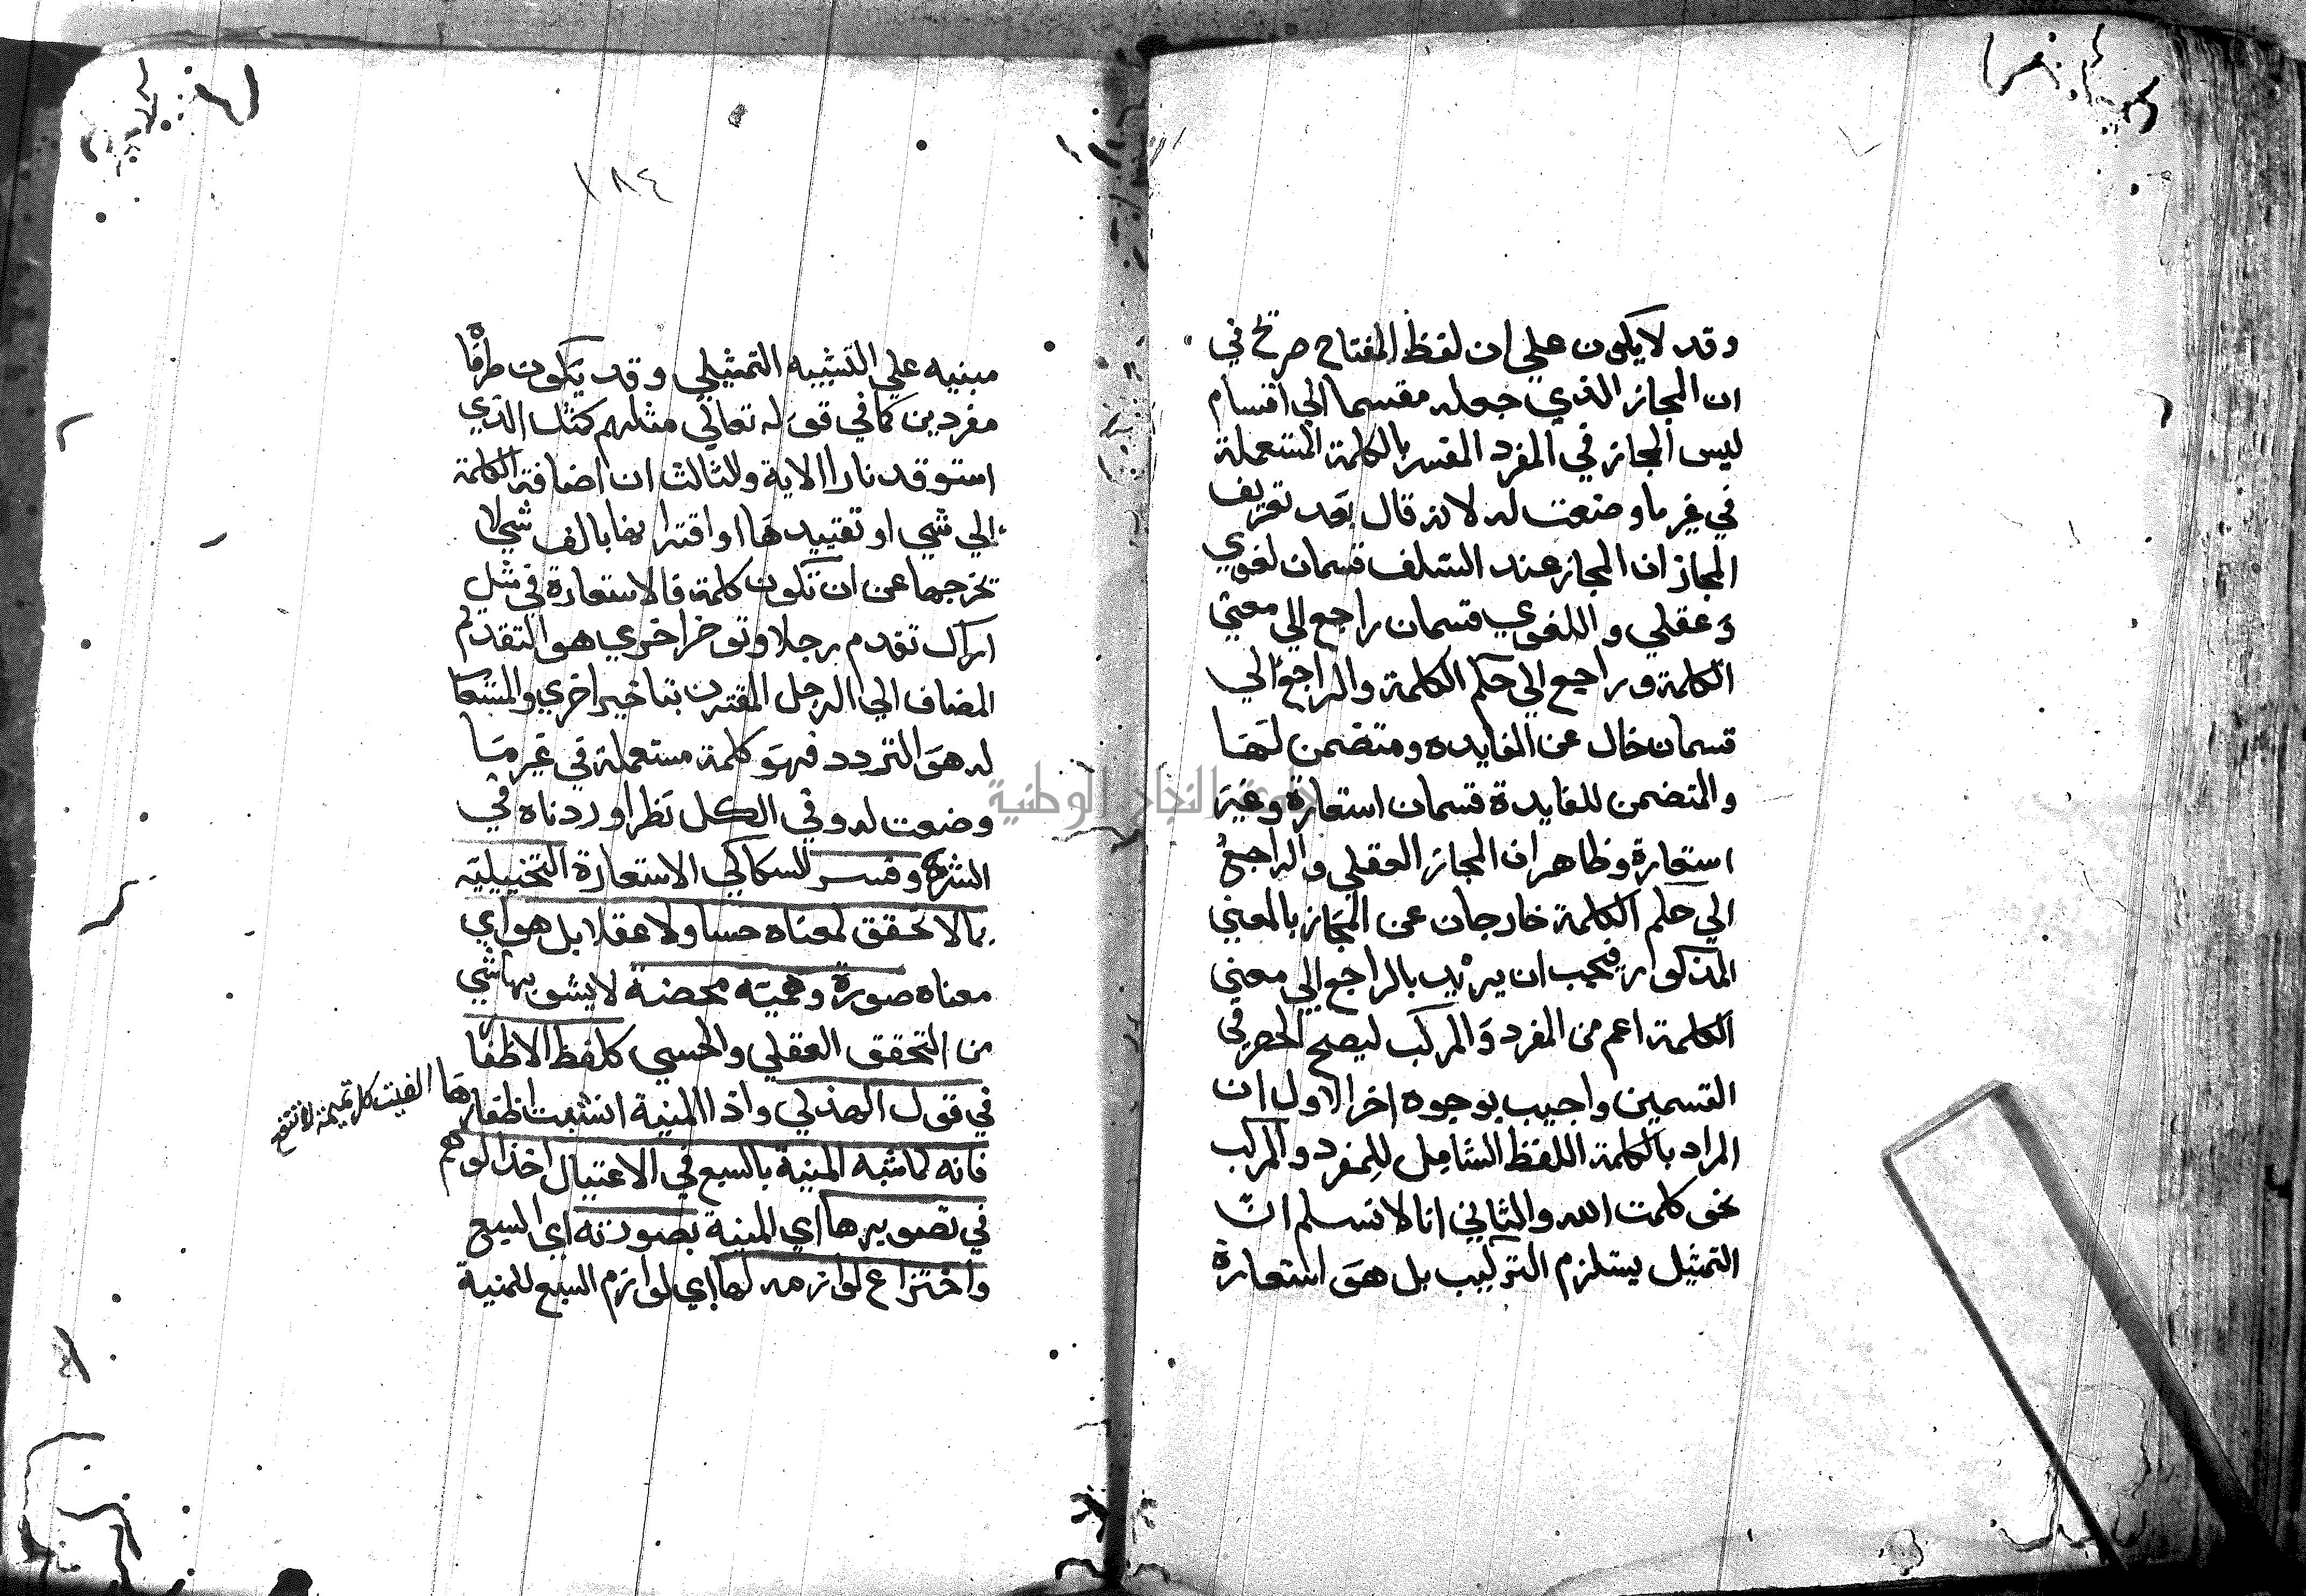 وقد لا يكون علي ان لفظ المفتاح صريح في
ان المجاز الذي جعله مقسما الي اقسام
ليس المجاز في المفرد المفسر بالكلمة المستعملة
في غير ما وضعت له لانه قال بعد تعريف
المجاز ان المجاز عند السلف قسمان لغوي
وعقلي واللغوي قسمان راجع الي معني
الكلمة وراجع الي حكم الكلمة والراجع الي
قسمان خال عن الفايده ومتضمن لها
والمتضمن للفايدة قسمان استعارة وغير
استعارة وظاهر ان المجاز العقلي والراجع
الي حكم الكلمة خارجان عن المجاز بالمعني
المذكور فيجب ان يريد بالراجع الي معني
الكلمة اعم من المفرد والمركب ليصح الحصر في
القسمين واجيب بوجوه اخر الاول ان
المراد بالكلمة اللفظ الشامل للمفرد والمركب
نحو كلمت الله والثاني انا لا نسلم ان
التمثيل يستلزم التركيب بل هو استعارة
١٨٤
مبنيه علي التشبيه التمثيلي وقد يكون طرفاه
مفردين كما في قوله تعالي مثلهم كمثل الذي
استوقد نارا الاية والثالث ان اضافة الكلمة
الي شي او تقييدها او اقترانها بالف شي لا
تخرجها عن ان تكون كلمة فالاستعارة في مثل
اراك تقدم رجلا وتوخر اخري هو التقدم
المضاف الي الرجل المقترن بتاخير اخري والمستعا
له هو التردد فهو كلمة مستعملة في غير ما
وضعت له وفي الكل نظر اوردناه في
الشرح وفسر السكاكي الاستعارة التخييلية
بما لا تحقق لمعناه حسا ولا عقلا بل هو اي
معناه صورة وهمية محضة لا يشوبها شي
من التحقق العقلي والحسي كلفظ الاظفا
في قول الهذلي واذا المنية انشبت اظفارها
الفيت كل تميمة لا تنفع
فانه لما شبه المنية بالسبع في الاغتيال اخذ الوهم
في تصويرها اي المنية بصورته اي السبع
واختراع لوازمه لها اي لوازم السبع للمنية
جامعة النجاح الوطنية